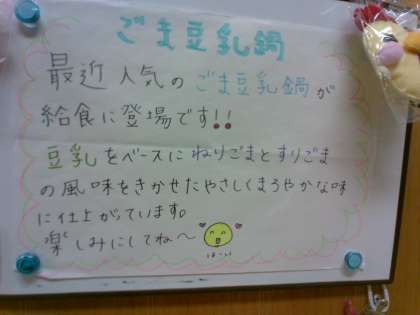 ごま豆乳鍋
最近人気のごま豆乳鍋が
給食に登場です!!
豆乳をベースにねりごまとすりごま
の風味をきかせたやさしくまろやかな味
に仕上がっています。
楽しみにしてね〜
はーい